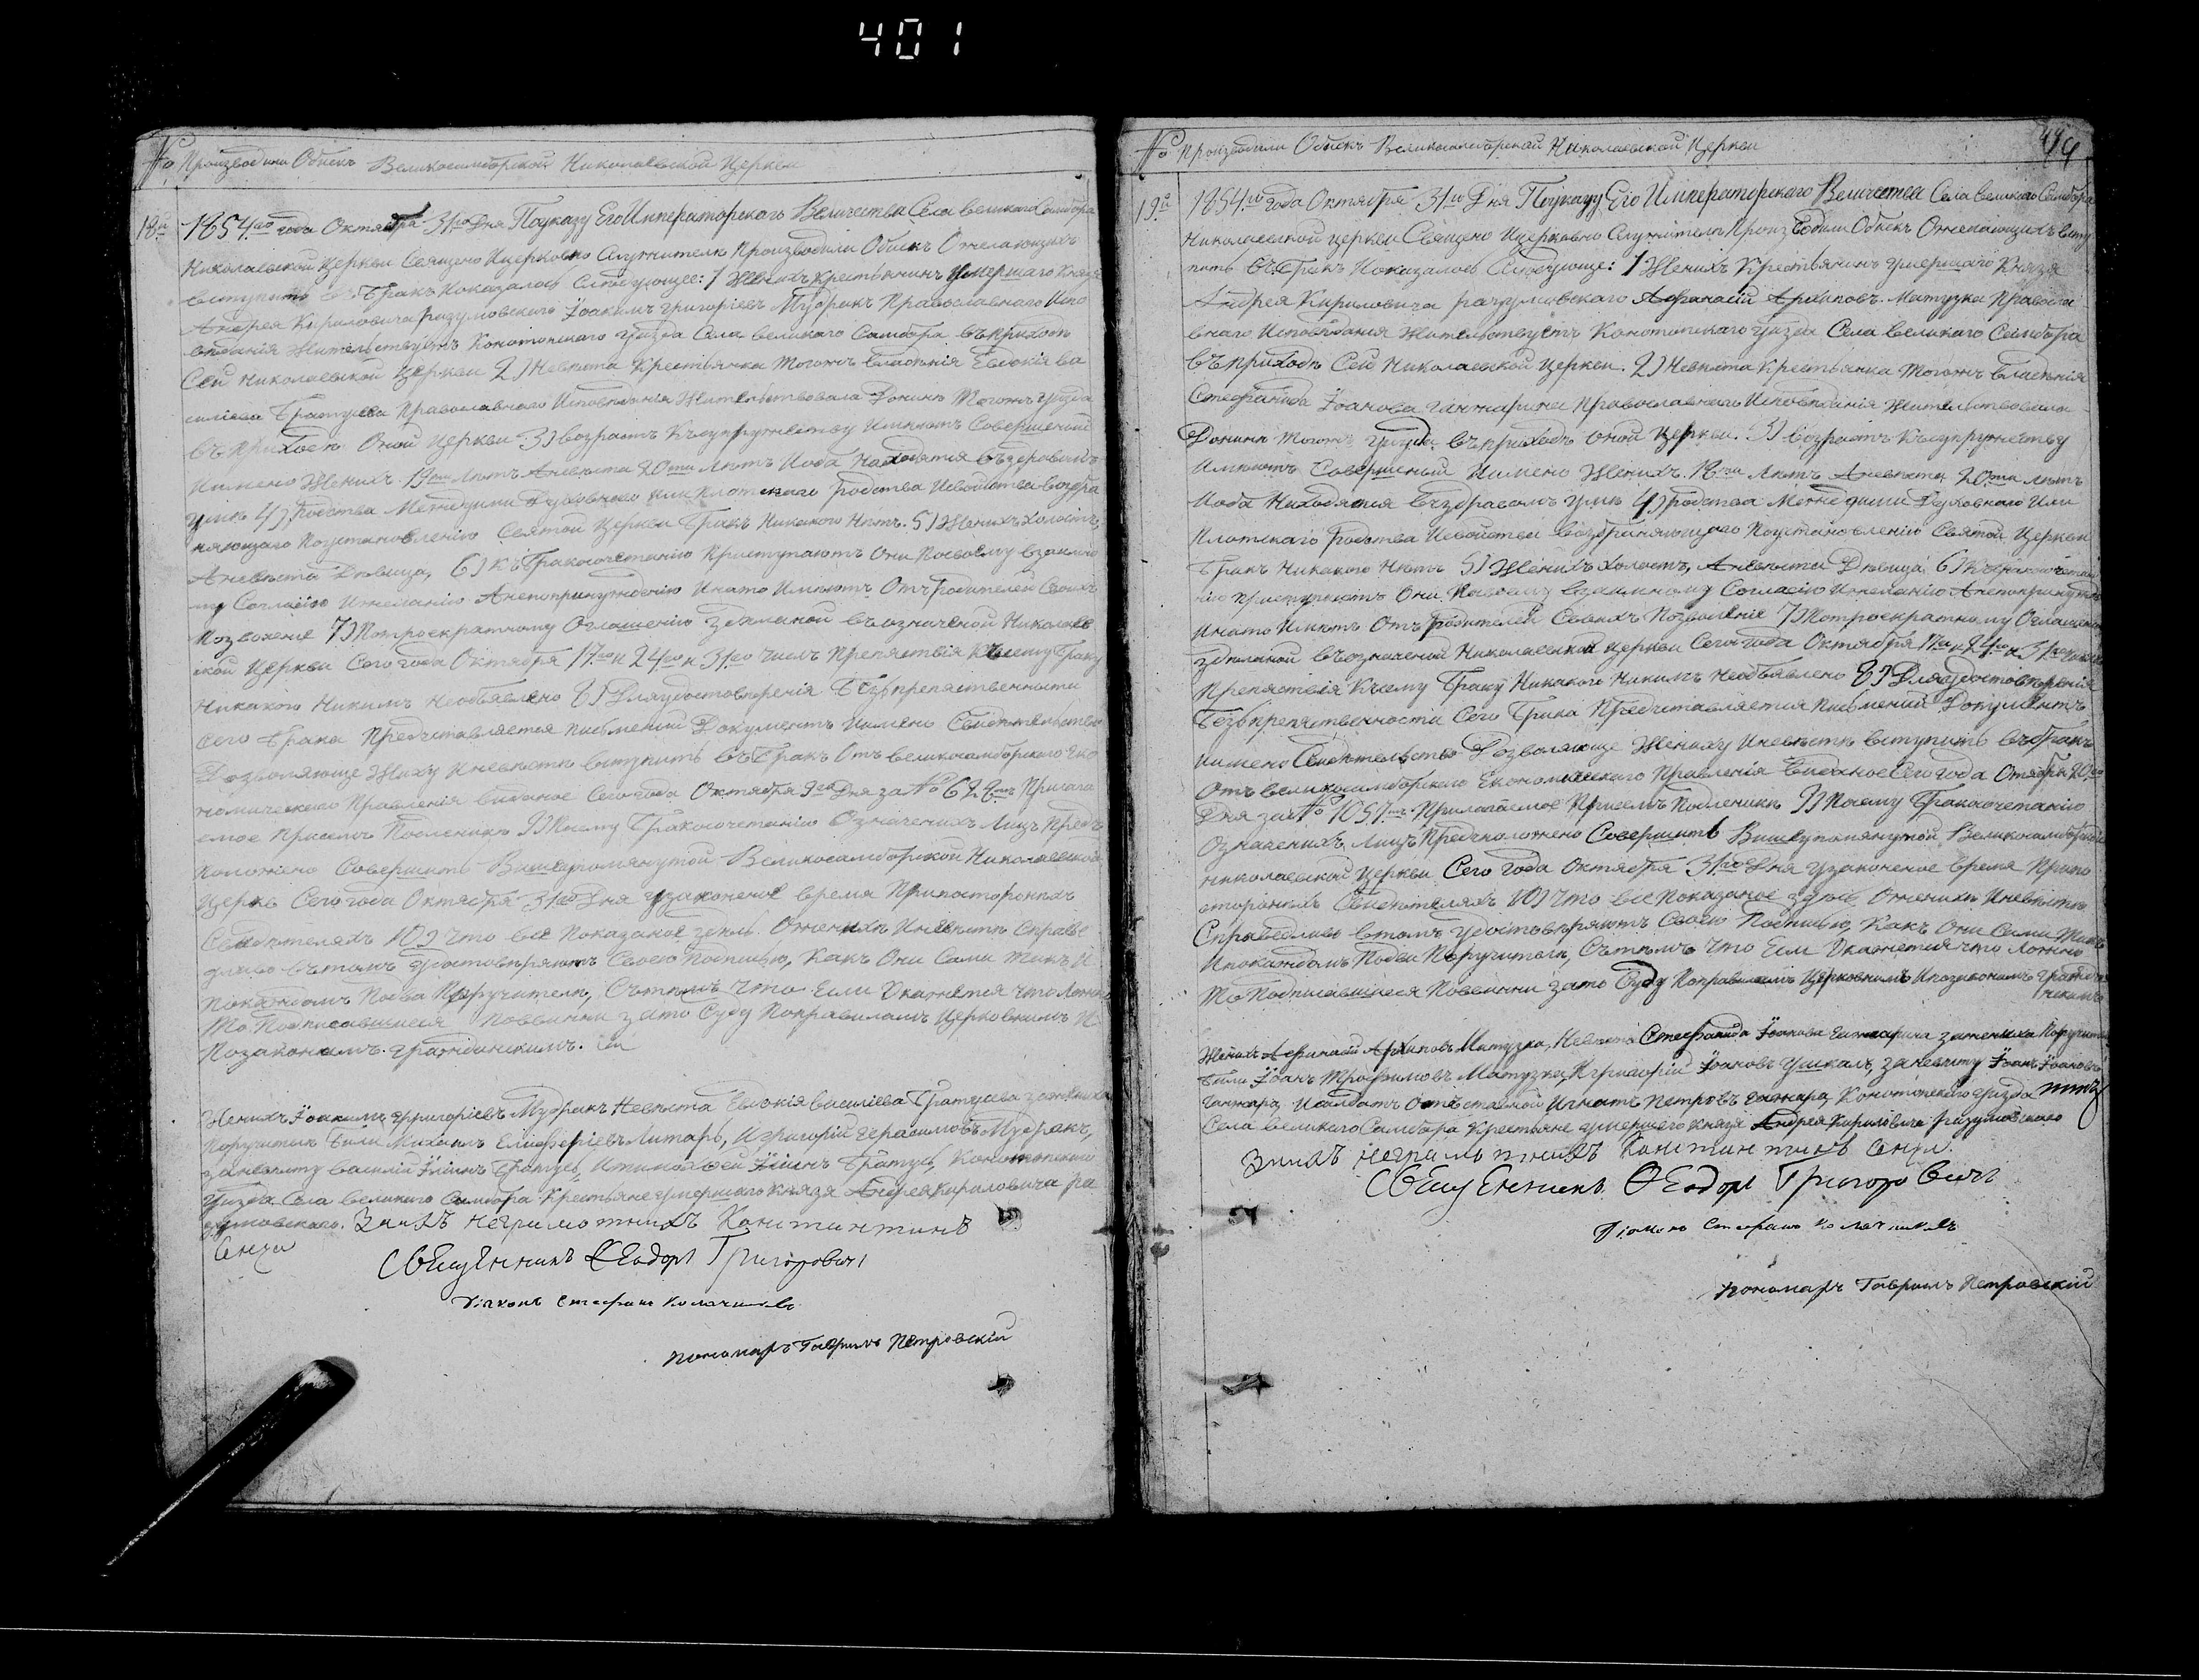 401
№ Производили Обыскъ Великосамборской Николаевской Церкви
18й 1854го года Октября 31го Дня По указу Его Императорскаго Величества Села великаго Самбора
Николаевской Церкви Священо Ицерковно Служители Производили Обыскъ Ожелающихъ
вступить въ Бракъ Иоказалось Следующее: 1 Женихъ Крестьянинъ Умершаго Князя
Андрея Кириловича Разумовскаго Іоакимъ Григоріевъ Мудракъ Православнаго Испо
веданія Жительствуетъ Конотопскаго уезда Села великаго Самбора въ приходе
Сей Николаевской Церкви 2) Невеста Крестьянка Тогожъ владенія Евдокія Ва
силіева Братусева Православнаго Исповеданія Жительствовала Донине Тогожъ Уезда
въ Приходе Оной Церкви 3) возрастъ Ксупружеству Имеютъ Совершеный
Имено Женихъ 19ти Летъ Аневеста 20ти Летъ Иоба Находятся въ здравомъ
уме 4) Родства Междуими Духовнаго или Плотскаго Родства Исвойства возбра
няющаго Поустановленію Святой Церкви Бракъ Никакого Нетъ. 5) Женихъ Холостъ,
Аневеста Девица, 6) Къ Бракосочетанію Приступаютъ Они Посвоему взаимно
му Согласію Ижеланію Анепопринужденію Инато Имеютъ Отъ родителей Своихъ
Позволеніе 7) Потроекратному Оглашенію зделаной въ означеной Николаев
ской Церкви Сего года Октября 17го и 24го и 31го Числъ Препятствія Ксему Браку
Никакого Никимъ Необъявлено 8) Для удостоверенія Безъпрепятственности
Сего Брака Предъставляется письменый Документъ Имено Свидетельство
Дозволяюще Жниху Иневесте вступить въ Бракъ Отъ великосамборскаго Эко
номическаго Правленія виданое Сего года Октября 9го Дня за № 629мъ Прилага
емое Присемъ Подленикъ 9) Посему Бракосочетанію Означеныхъ Лицъ Предъ
положено Совершить Вишеупомянутой Великосамборской Николаевской
Церкв Сего года Октября 31го Дня Узаконеное время Припостороныхъ
Свидетеляхъ 10) Что все Показаное зделе Оженихе Иневесте Справе
дливо въ томъ Удостоверяютъ Своею Подписью, Какъ Они Сами Такъ И
Покаждомъ Подва Поручителя, Сътемъ Что Если Окажется что Ложно
То Подписавшиеся Повинни зато Суду Поправиламъ Церковнимъ И
Позаконамъ Гражданскимъ.
Женихъ Іоакимъ Григоріевъ Мудракъ Невеста Евдокія Василіева Братусева зажениха
Поручители Били Михаилъ Елиферіевъ Литаръ, Игригорій Герасимовъ Мудракъ,
заневесту Василій Братусь, Братусь, Конотопскаго
Уезда Села великаго Самбора Крестьяне умершаго князя Андрея Кириловича Ра
зумовскаго. Заихъ неграмотнихъ Константинъ
Священникъ Феодоръ Григоровичъ
Діаконъ Стефанъ
Пономаръ Гавриилъ Петровскій
№ Производили Обыскъ Великосамборской Николаевской Церкви
19й 1854го года Октября 31го Дня По указу Его Императорскаго Величества Села великаго Самбора
Николаевской церкви Священо Ицерковно Служители Производили Обыскъ Ожелающихъ всту
пить въ Бракъ Иоказалось Следующе: 1 Женихъ Крестьянинъ умершаго Князя
Андрея Кириловича разумовскаго Афанасій Архиповъ Матузка Правосла
внаго Исповеданія Жительствуетъ Конотопскаго уезда Села великаго Самбора
въ приходе Сей Николаевской Церкви. 2) Невеста Крестьянка Тогожъ владенія
Стефанида Іоанова Ганжарина Православнаго Исповеданія Жительствовала
Донине Тогожъ Уезда въ приходе Оной Церкви. 3) возрастъ Ксупружеству
Имеютъ Совершеный Имено Женихъ 18ти Летъ Аневеста 20ти летъ
Иоба Находятся въздравомъ уме 4) Родства Междуими Духовнаго Или
Плотскаго Родства Исвойства возбраняющаго Поустановленію Святой Церкви
Бракъ Никакого Нетъ 5) Женихъ Холостъ, Аневеста Девица 6) Къбракосочета
нію приступаютъ Они Посвоему взаимному Согласію Ижеланію Анепопринужде
Инато Имеютъ Отъ Родителей Своихъ Позволеніе 7) Потроекратному Оглашенію
зделаной въозначеной Николаевской Церкви Сего года Октября 17го и 24го и 31го
Препятствія Ксему Браку Никакого Никимъ Необъявлено 8) Для удостоверенія
Безъпрепятственности Сего Брака Предъставляется письменый Документъ
Имено Свидетельство Дозволяюще Жениху Иневесте вступить въ Бракъ
Отъ великосамборскаго Економическаго Правленія виданое Сего года Октября 20го
Дня за № 1057мъ Прилагаемое Присемъ Подленикъ 9) Посему Бракосочетанію
Означеныхъ лицъ Предположено Совершить Вишеупомянутой Великосамборской
Николаевской Церкви Сего года Октября 31го Дня Узаконеное время Припо
стороныхъ Свидетеляхъ 10) Что все Показаное зделе Оженихе Иневесте
Справедливо втомъ Удостоверяютъ Своею Подписью, Какъ Они Сами Такъ
Ипокаждомъ Подва Поручителя, Сътемъ Что Если Окажется что Ложно
То Подписавшиеся Повинни зато Суду Поправиламъ Церковнимъ Ипозаконамъ Граждан
скимъ
Женихъ Афанасій Архиповъ Матузка, Невеста Стефанида Іоанова Ганжарина зажениха Поручители
Били Іоанъ Трофимовъ Матузка, Игригорій Іоановъ Ушкалъ, заневесту Іоанъ Іоановъ
Ганжара Исалдатъ Отъставной Игнатъ Петровъ Ганжара Конотопскаго уезда
Села великаго Самбора Крестьяне умершаго князя Андрея Кириловича разумовскаго
Заихъ неграмотнихъ Константинъ
Священникъ Феодоръ Григоровичъ
Діаконъ Стефанъ
Пономаръ Гавриилъ Петровскій